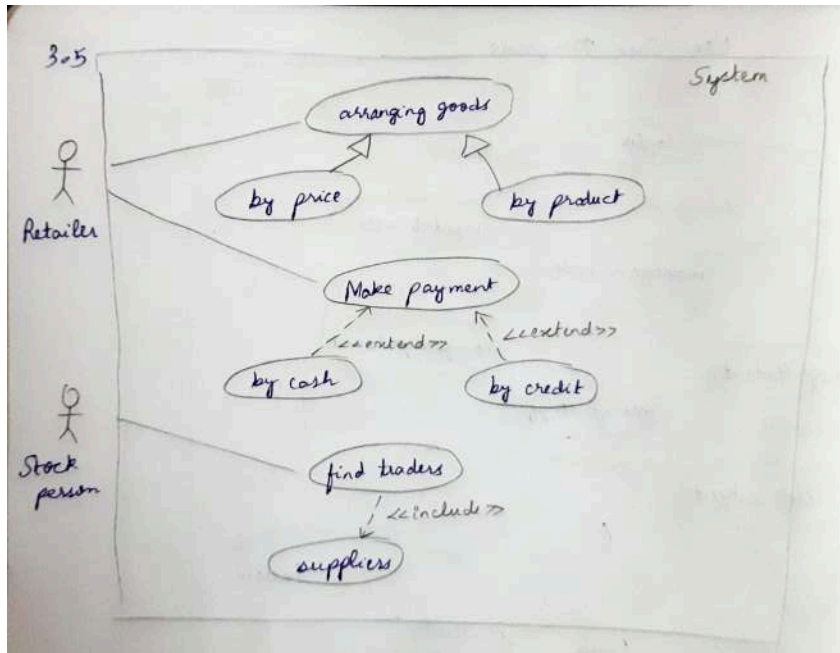 3.5
System
arranging goods
by price
by product
Retailer
Make payment
<<extend>>
<<extend>>
by cash
by credit
Stock
person
find traders
<<include>>
suppliers